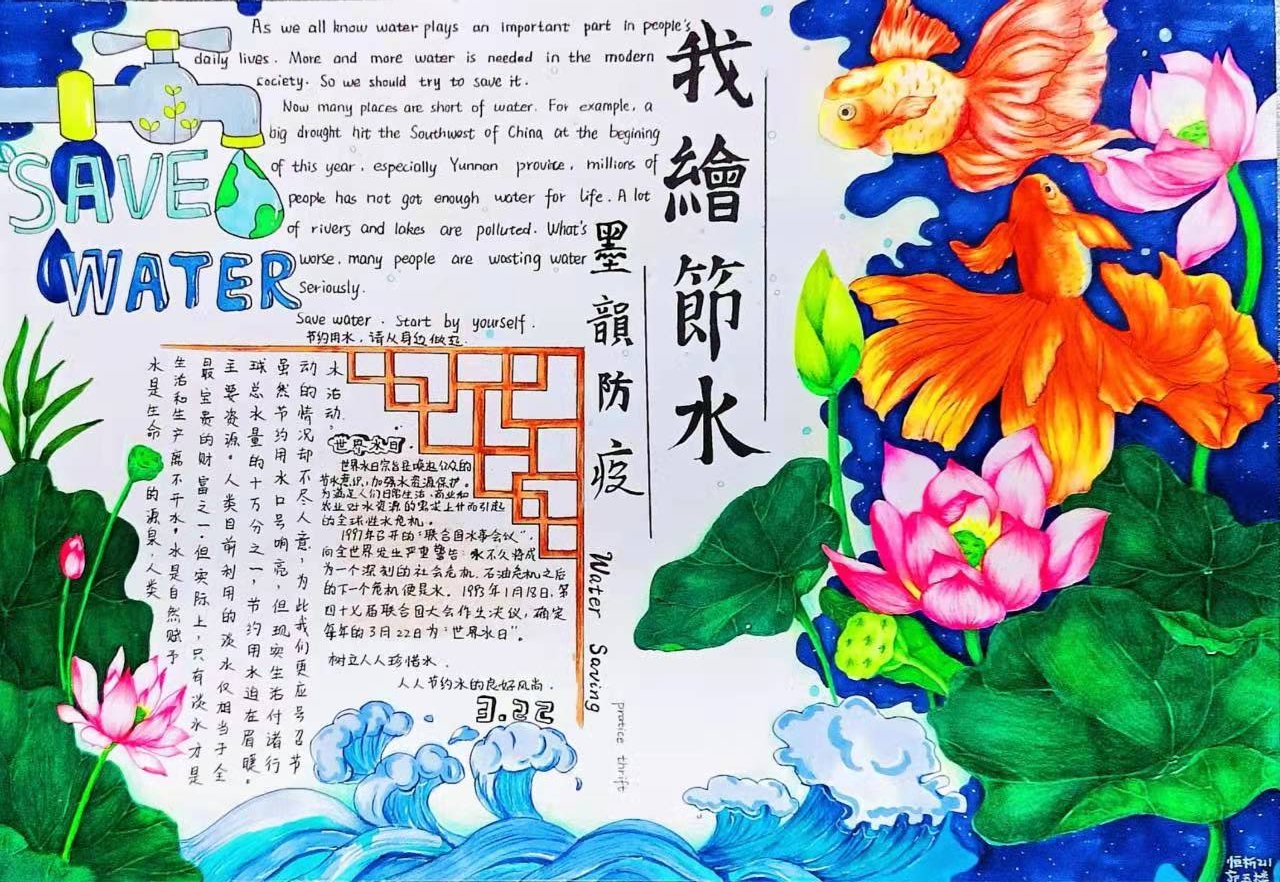 As we all know water plays an important part in people's
daily lives. More and more water is needed in the modern
society. So we should try to save it.
Now many places are short of water. For example, a
big drought hit the Southwest of China at the begining
of this year, especially Yunnan provice, millions of
people has not got enough water for life. A lot
of rivers and lakes are polluted. What's
worse, many people are wasting water
Seriously.
Save water. Start by yourself.
节约用水,请从身边做起.
SAVE
WATER
我繪節水
墨韻防疫
Water Saving
pratice thrift
水是生命的源泉,人类
生活和生产离不开水。水是自然赋予
最宝贵的财富之一.但实际上,只有淡水才是
主要资源。人类目前利用的淡水仅相当于全
球总水量的十万分之一,节约用水迫在眉睫。
虽然节约用水口号响亮,但现实生活付诸行
动的情况却不尽人意,为此我们更应号召节
水活动.
世界水日.
世界水日宗旨是唤起公众的
节水意识,加强水资源保护。
为满足人们日常生活、商业和
农业对水资源的需求上升而引起
的全球性水危机。
1997年召开的“联合国水事会议”,
向全世界发出严重警告:水不久将成
为一个深刻的社会危机,石油危机之后
的下一个危机便是水。1993年1月18日,第
四十七届联合国大会作出决议,确定
每年的3月22日为“世界水日”。
树立人人珍惜水.
人人节约水的良好风尚.
3.22